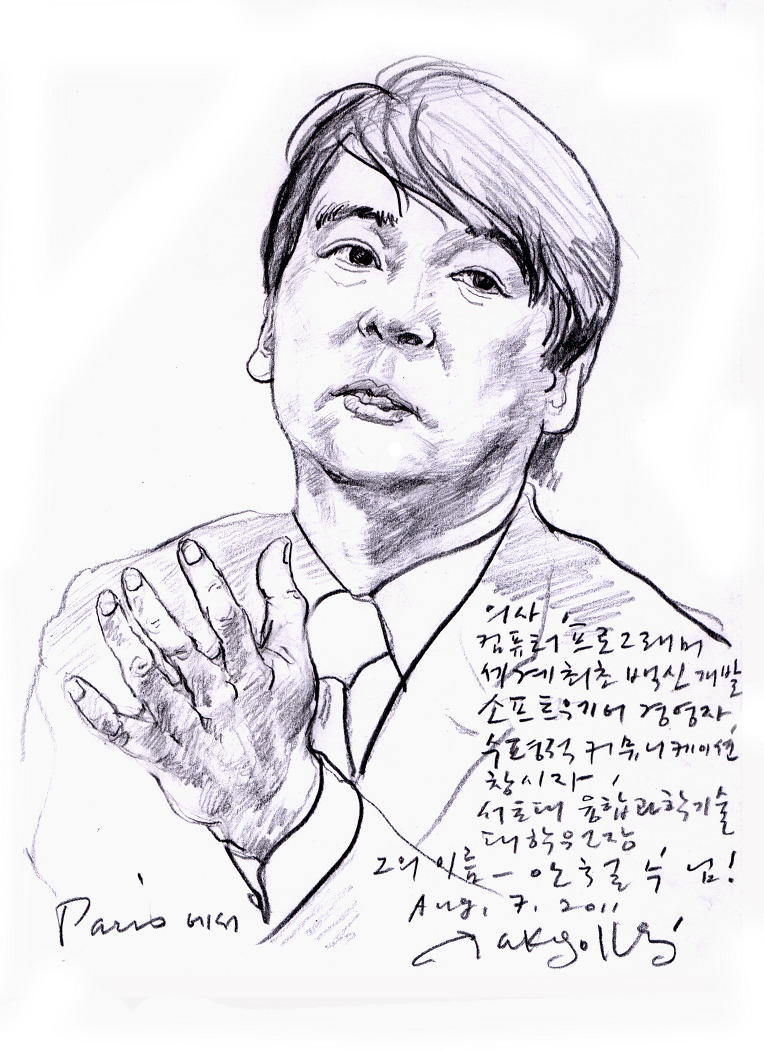 의사,
컴퓨터 프로그래머
세계최초 백신 개발
소프트우기어 경영자
수평적 커뮤니케이션
창시자,
서울대 융합과학기술
대학원장
그의 이름 - 안철수 님!
Aug. 7. 2011
Paris 에서